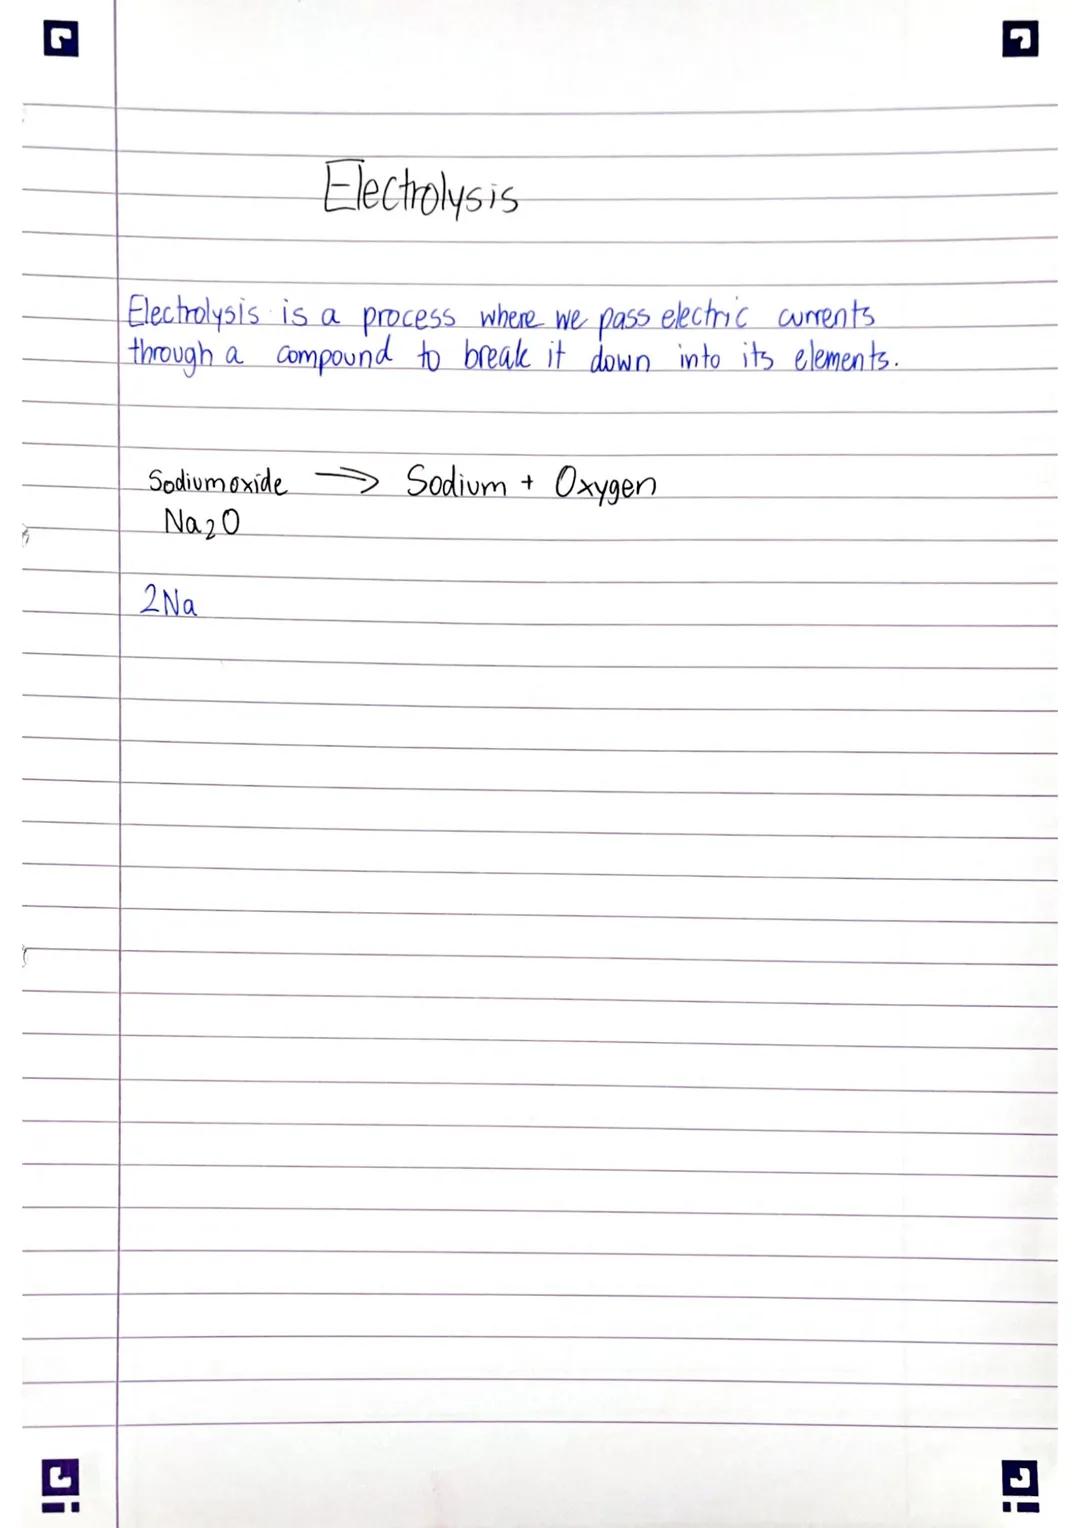 Electrolysis
Electrolysis is a process where we pass electric currents
through a compound to break it down into its elements.
Sodiumoxide → Sodium + Oxygen
Na₂O
2Na